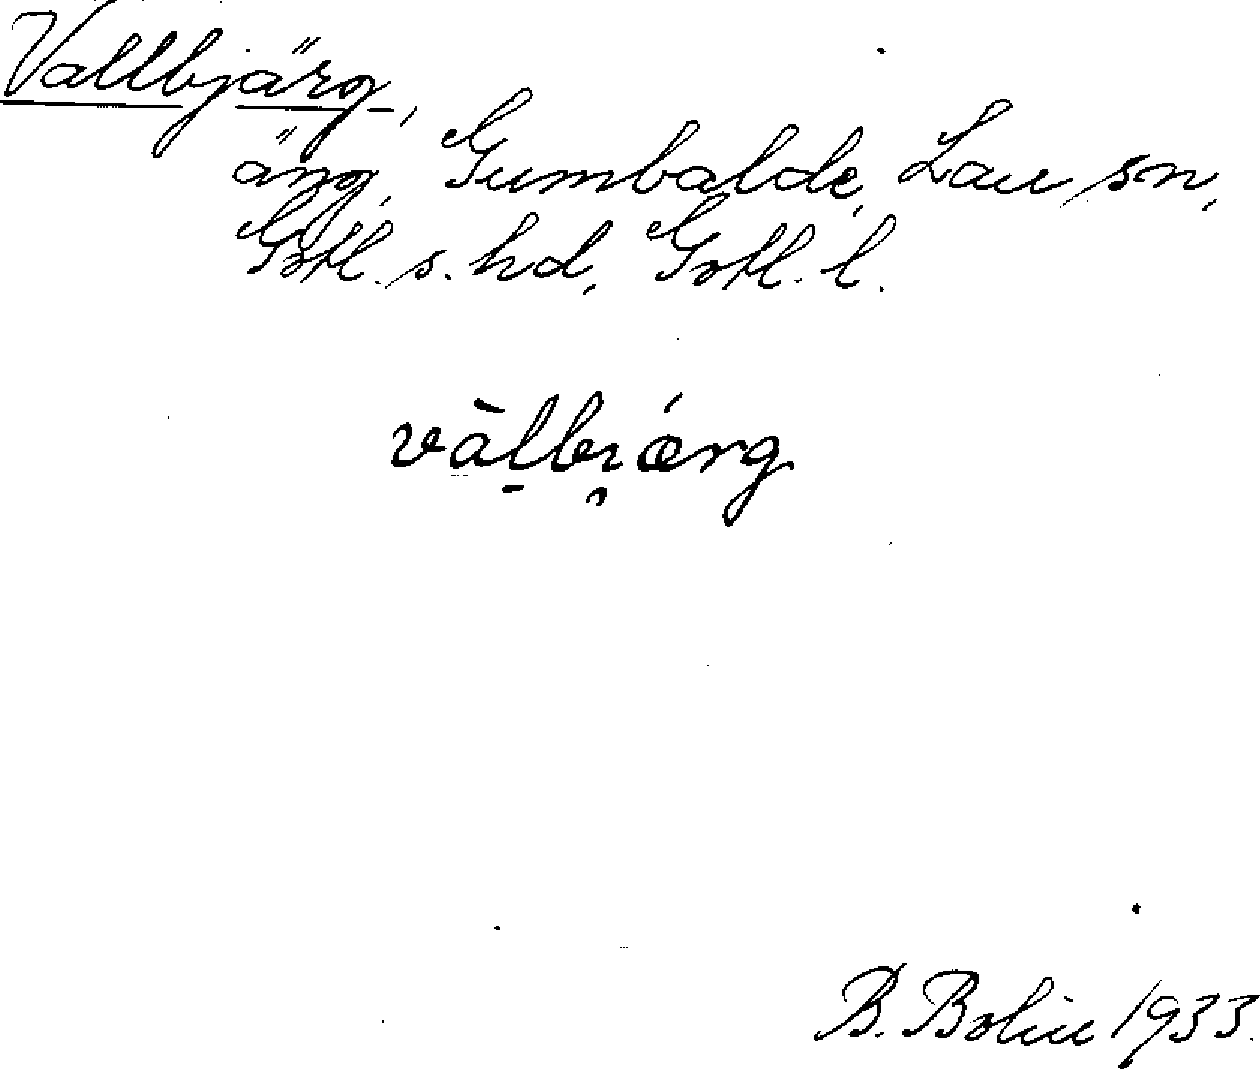 Vallbjärg,
äng, Gumbalde, Lau sn,
Gotl. s. hd, Gotl. l.
vàl̠bı̯ǽrg
B. Bolin 1933.